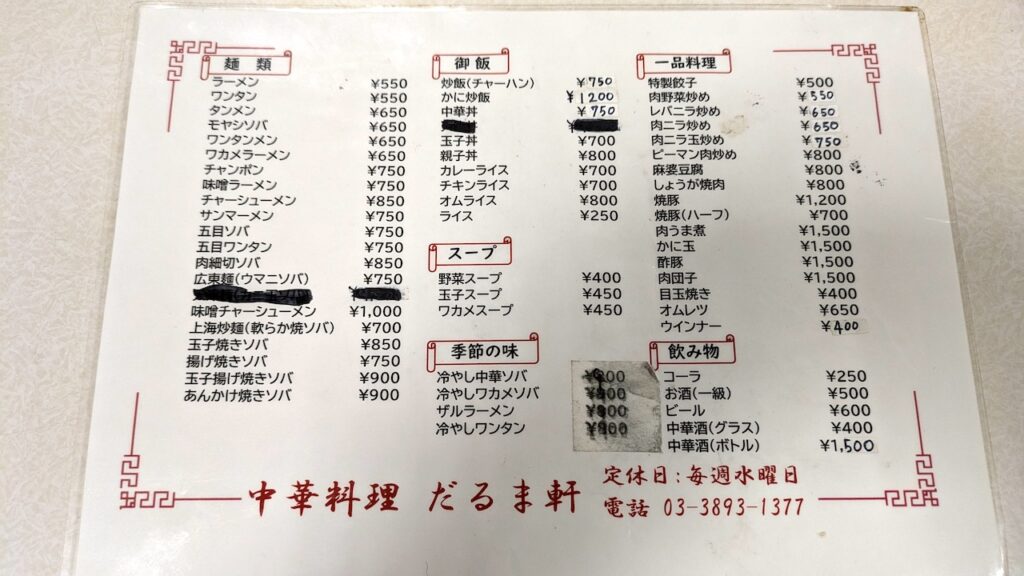 麺類
ラーメン ¥550
ワンタン ¥550
タンメン ¥650
モヤシソバ ¥650
ワンタンメン ¥650
ワカメラーメン ¥650
チャンポン ¥750
味噌ラーメン ¥750
チャーシューメン ¥850
サンマーメン ¥750
五目ソバ ¥750
五目ワンタン ¥750
肉細切ソバ ¥850
広東麺(ウマニソバ) ¥750
味噌チャーシューメン ¥1,000
上海炒麺(軟らか焼ソバ) ¥700
玉子焼きソバ ¥850
揚げ焼きソバ ¥750
玉子揚げ焼きソバ ¥900
あんかけ焼きソバ ¥900
御飯
炒飯(チャーハン) ¥750
かに炒飯 ¥1200
中華丼 ¥750
玉子丼 ¥700
親子丼 ¥800
カレーライス ¥700
チキンライス ¥700
オムライス ¥800
ライス ¥250
スープ
野菜スープ ¥400
玉子スープ ¥450
ワカメスープ ¥450
季節の味
冷やし中華ソバ
冷やしワカメソバ
ザルラーメン
冷やしワンタン
一品料理
特製餃子 ¥500
肉野菜炒め ¥550
レバニラ炒め ¥650
肉ニラ炒め ¥650
肉ニラ玉炒め ¥750
ピーマン肉炒め ¥800
麻婆豆腐 ¥800
しょうが焼肉 ¥800
焼豚 ¥1,200
焼豚(ハーフ) ¥700
肉うま煮 ¥1,500
かに玉 ¥1,500
酢豚 ¥1,500
肉団子 ¥1,500
目玉焼き ¥400
オムレツ ¥650
ウインナー ¥400
飲み物
コーラ ¥250
お酒(一級) ¥500
ビール ¥600
中華酒(グラス) ¥400
中華酒(ボトル) ¥1,500
中華料理 だるま軒
定休日:毎週水曜日
電話 03-3893-1377